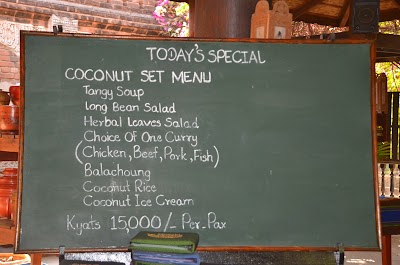 TODAY'S SPECIAL
COCONUT SET MENU
Tangy Soup
Long Bean Salad
Herbal Leaves Salad
Choice Of One Curry
(Chicken, Beef, Pork, Fish)
Balachoung
Coconut Rice
Coconut Ice Cream
Kyats 15,000/- Per-Pax